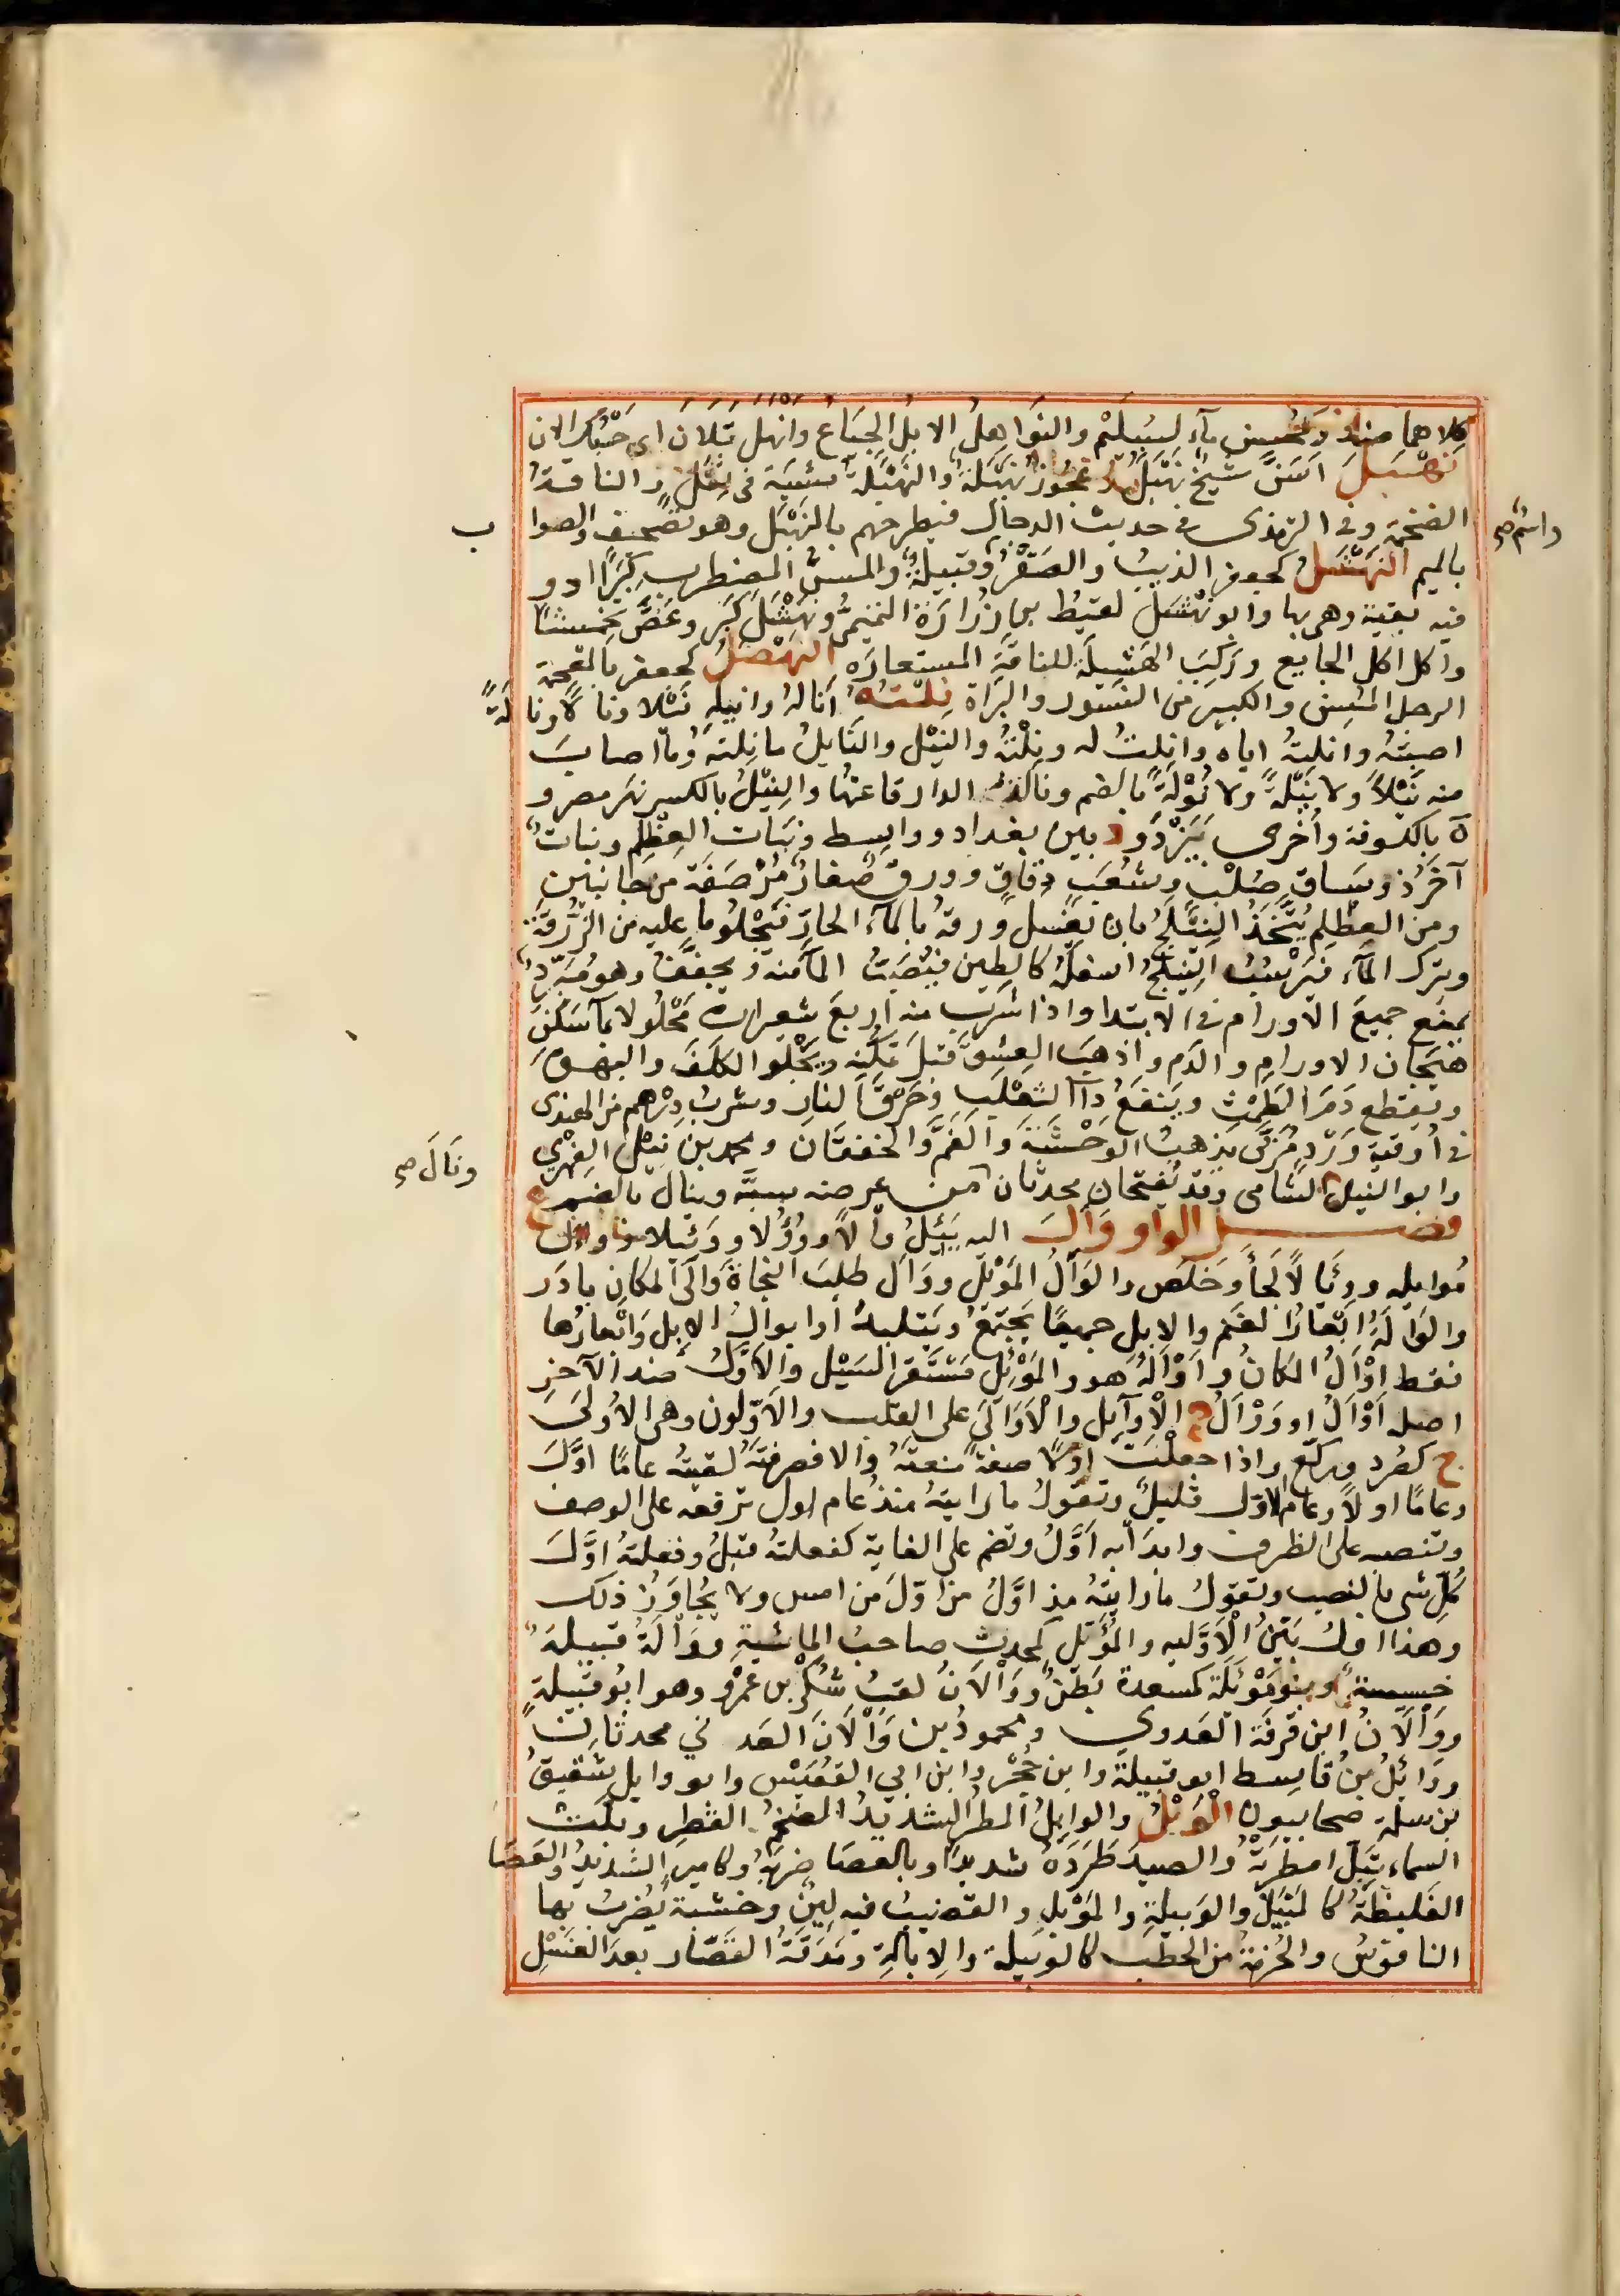 كِلاهما ضِدٌّ وكمُحسِن ماء لسُلَيْم والنَوَاهِلُ الابلُ الجِيَاعُ وانهل بَلان اى حَسْبُك الان
نَهْبَلَ اسَنَّ شَيخ نَهْبَلٌ وعَجُوزٌ نَهْبَلَةٌ والنَهْبَلَةُ مِشيَة فى ثِقَلٍ والناقةُ
الضخمة وفى الترمذى فى حديث الدجال فيطرحهم بالنَهْبَل وهو تصحيف والصوا ب
واسْمٌ صح
بالميم النَهْشَلُ كجعفر الذيبُ والصَقْرُ وقبيلةٌ والمسنُّ المضطرب كِبَرًا او و
فيه بقية وهى بها وابو نَهْشَلٍ لقيطُ بن زُرَارَةَ التميمىُّ ونَهْشَلَ كَبِرَ وعَضَّ تجميشًا
واكل اكل الجايع ورَكِبَ الهَشِيلَةَ للناقَةِ المستعارَة النهضل كجعفر بالمعجمة
الرجل المُسِنّ والكبيرُ من النسور والبُزاة نِلْتُهُ أَنَالُهُ وانيلُهُ نَيْلا ونالاً ونالَةً
اصبتُهُ وانلتُهُ اياه وانلتُ له ونِلْتُهُ والنَيْل والنَايِلُ ما نِلتَهُ وما اصابَ
منه نَيْلاً ولا نَيْلَةً ولا نُوْلَةً بالضم ونالة الدار قاعتها والنِيْلُ بالكسر نهر مصر و
ة بالكوفة وأخرى بيَزْدَ و د بين بغداد وواسط ونبات العِظْلِم ونباتٌ
آخَرُ ذو سَاقٍ صُلْبٍ وشُعَبٍ دِقَاقٍ وورق صغار مُرَصَّفَة من جانبين
ومن العِظْلِم يُتَّخَذُ النِيْلَجُ بان يُغْسل ورقهُ بالماء الحارّ فيَجْلُو ما عليه من الزُرْقَة
ويترك الماء فيرسُبُ النِيْلَجُ اسفلَهُ كالطين فيُصَبُّ الماء منه ويجفَّف وهو مُبَرِّدٌ
يمنَع جميعَ الاورام فى الابتدا واذا شُرِبَ منه اربع شعيرات مَحْلُولا بماء سَكَّنَ
هَيَجَان الاورامِ والدم واذهب العِشقَ قبلَ تمكّنِه ويَجْلُو الكَلَفَ والبَهَق
ويقطع دَمَ الطَمْثِ ويَنفَعُ داء الثعْلَبِ وحَرْقَ النار وشربُ دِرْهَم من الهندى
فى أُوقية وَرْدٍ مُرَبًّى يُذهبُ الوَحْشَةَ والغَمَّ والخفقان ومحمد بن نِيْل الفِهْرِي
وابو النيل الشامى وقد يُفتَحان محدثان من عرضه سبَّه وينال بالضم
ونَالَ صح
فصل الواو وَأَلَ اليه يَئِلُ وَأْلاً وَوُؤُلا ووَئيلا وواءَل
مُواءلة ووِئالاً لَجَأَ وخَلَص والوَأْلُ المَوْئِل ووَأَلَ طلب النجاةَ والَى المكانِ بادَر
والوَأْلَةُ ابْعَارُ الغنم والابل جميعًا يجتَمعُ ويَتَلبدُ او ابوالُ الابل وَابْعَارُها
فقط اوْأَلَ المكانُ واوْأَلَهُ هو والمَوْئِلُ مُسْتَقَرّ السَيْل والأَوَّلُ ضد الآخرِ
اصله اَوْأَلُ او وَوْأَلُ ج الاَوَآئِل والاَوَالِى على القلب والاَوّلون وهى الاُولَى
ج كصُرَد ورُكَّعٍ واذا جعلْتَ اوّلاً صفةً منعتَهُ والا فصرفتَهُ لقيتُه عامًا اوَّلَ
وعامًا اولاً وعام الاوّل قليلٌ وتقولُ ما رايتهُ منذ عام اول ترفعه على الوصف
وتنصبه على الظرف وابدَأ به أوَّلُ وتضم على الغاية كفعلتهُ قبلُ وفعلتهُ اوَّلَ
كُلِّ شى بالنصب وتقولُ ما رايتهُ مذ اوَّلَ من اوّلَ من امس ولا يُجَاوَزُ ذلك
وهذا اولُ بَيِّنُ الاَوَّليه والمُؤَّل كمُحدِث صاحبُ الماشيةِ ووَأْلَةُ قبيلةٌ
خسيسةٌ وبنو مَوْئَلَة كمسعدة بَطنٌ ووَأْلانُ لقب شُكْر بن عَمْرٍو وهو ابُو قبيلةٍ
ووَأْلانُ ابن قرفَة العدوى ومحمودُ بن وَأْلانَ العَدَنى محدثان
ووَائِلُ بنُ قاسِط ابو قبيلة وابن حُجْر وابن ابى القُعَيْس وابو وايل شقيقُ
بن سلمة صحابيون الوَبْلُ والوابِلُ المطرُ الشديدُ الضخمُ القطرِ وبَلَتْ
السماء تَبِلُ امطرَتْ والصيدَ طَرَدَهُ شديدًا وبالعصا ضرب وكامير الشديدُ والعَصَا
الغَليظةُ كالمِيْبَلِ والوَبيلَةِ والمَوْبِلِ والقضيبُ فيه لِيْنٌ وخشبة يُضربُ بها
الناقوسُ والحُزمةُ من الحَطَبِ كالوَبيلة والاِبالَةِ ومِدَقَّةُ القصّار بعد الغَسْلِ